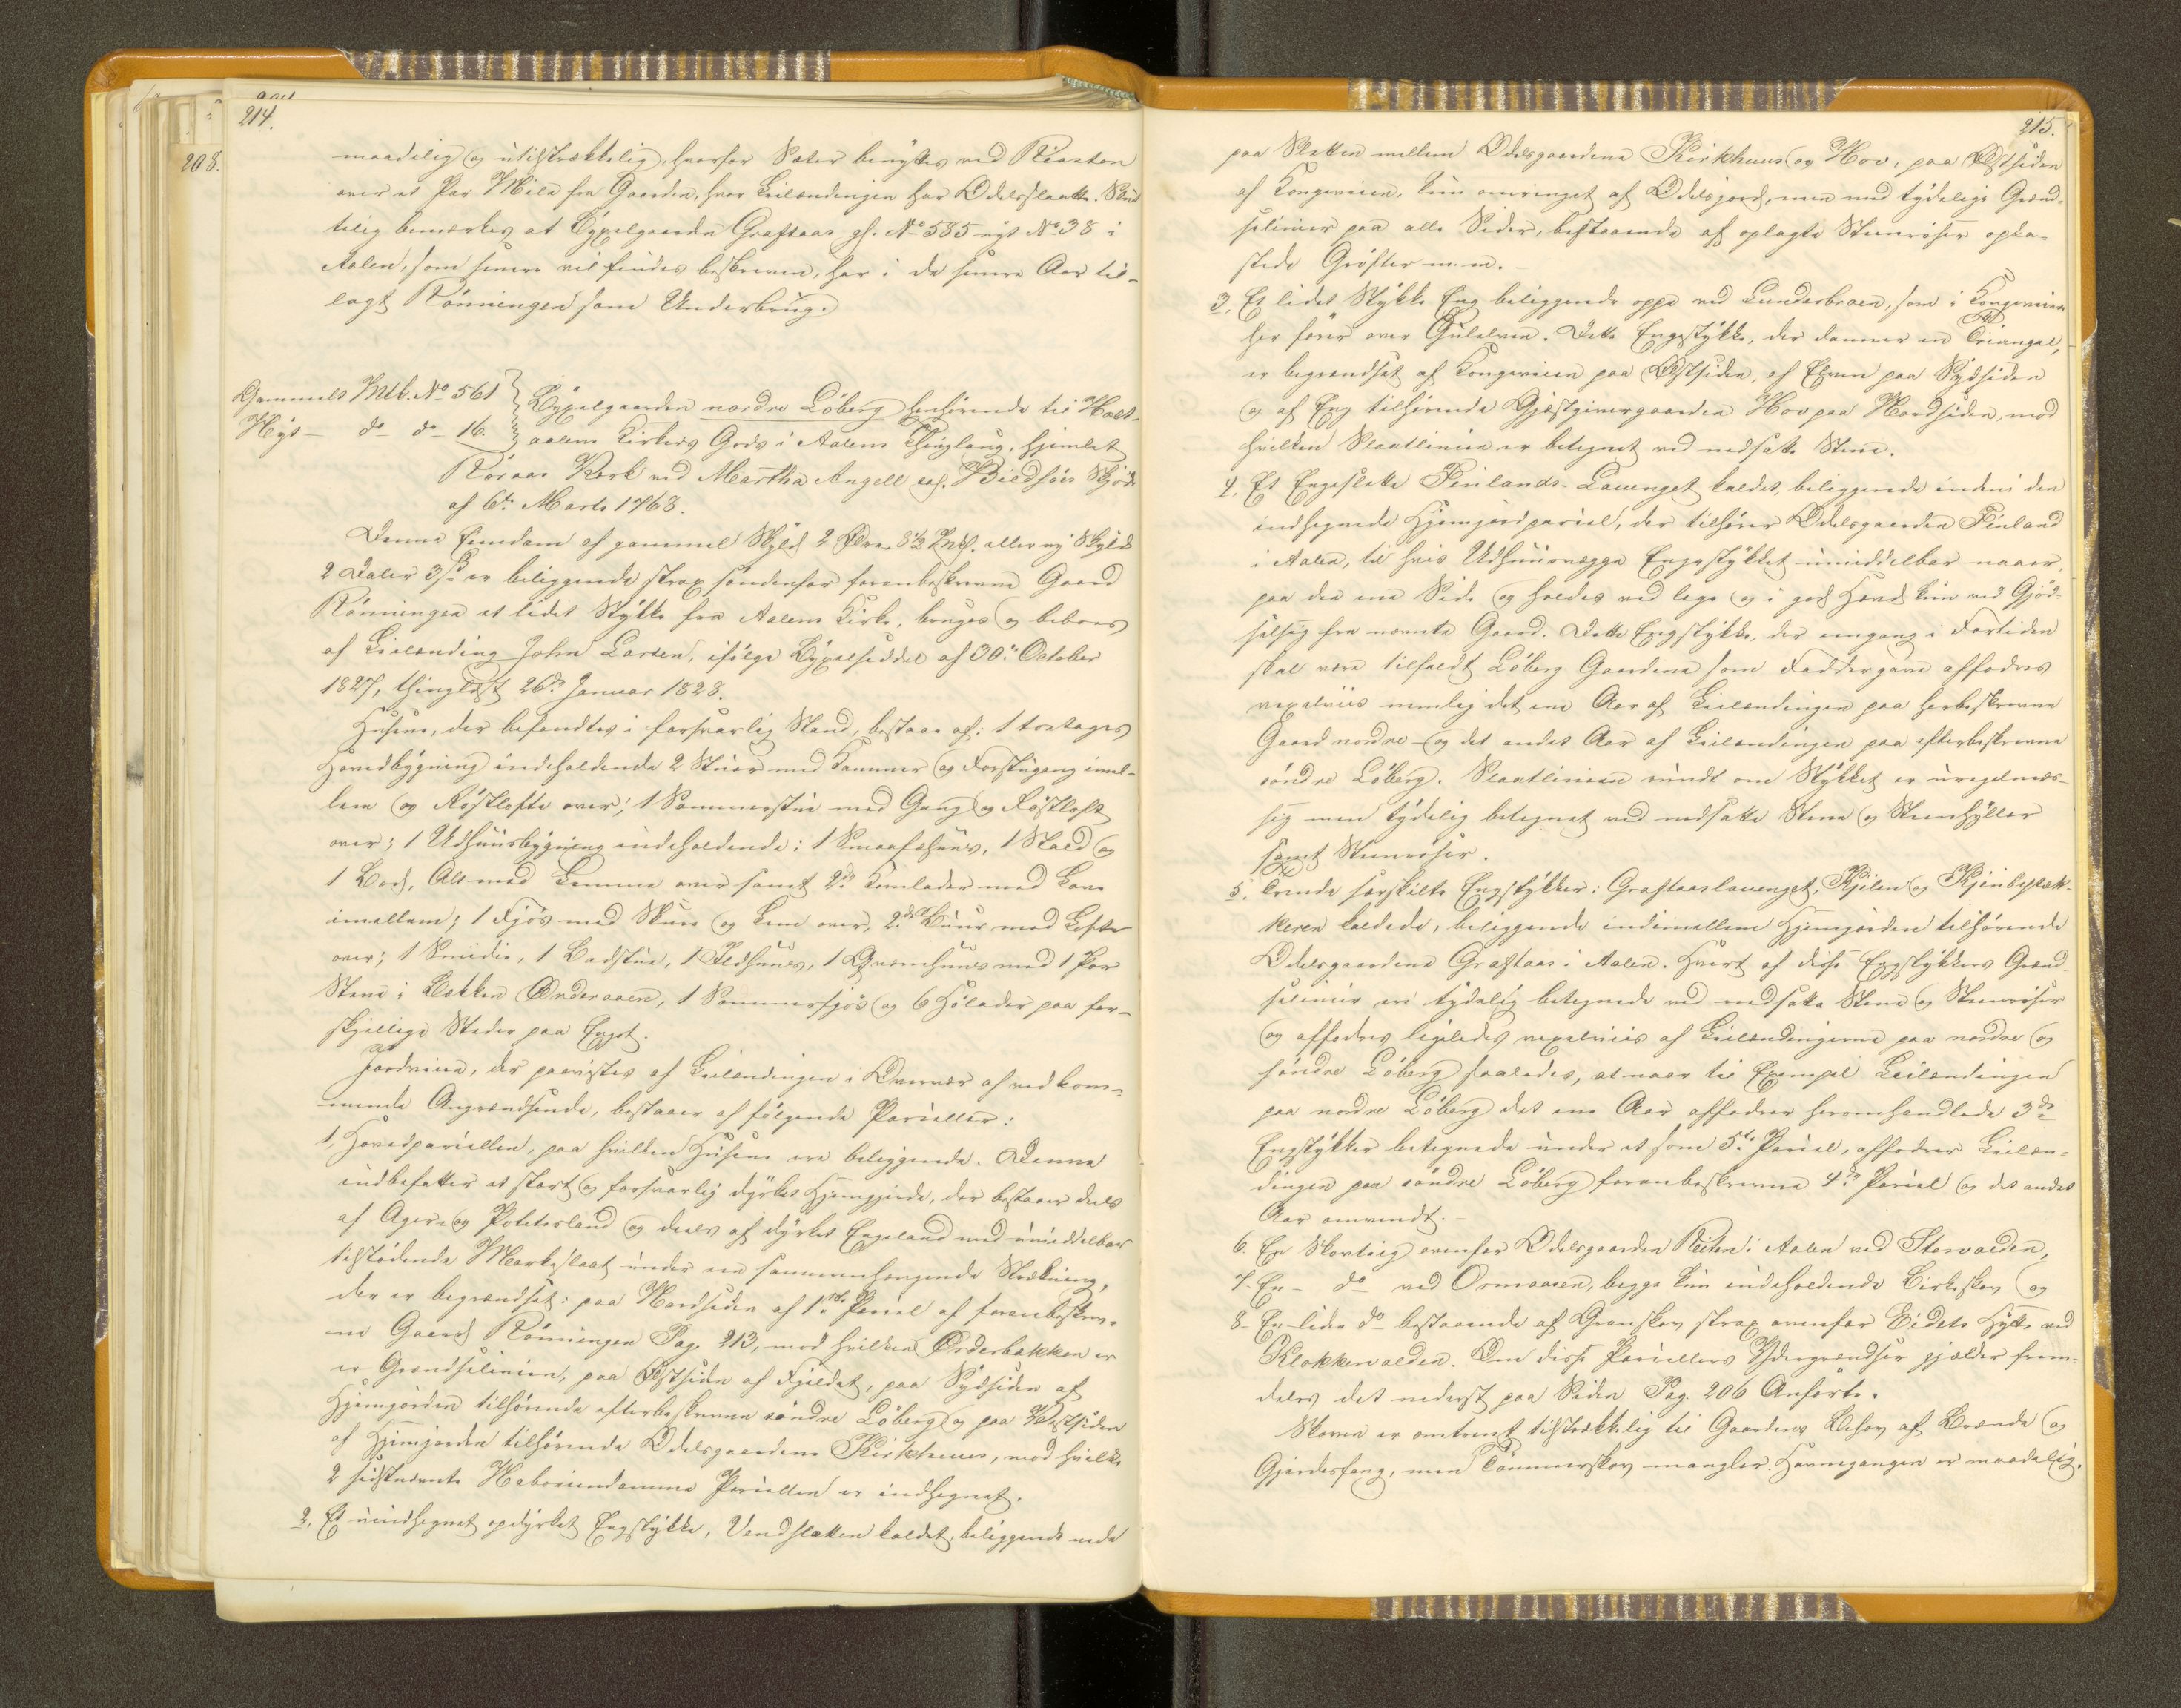 214.
208.
maadelig og utilstrækkelig, hvorfor Sæter benyttes ved Riasten
over et Par Mile fra Gaarden, hvor Leilændingen har Odelsslaatte. Slut
telig bemærkes at Bygselgaarden Graftaas gl. No 585 nyt No 38 i
Aalen, som senere vil findes beskreven, har i de senere Aar til-
lagt Rønningen som Underbrug.
Gammelt Mtl. No 561
Nyt — do do 16.
Bygselgaarden nordre Løberg henhørende til Holt-
aalens Kirkes Gods i Aalens Thinglaug, hjemlet
Røraas Værk ved Martha Angell sal. Bredførs Skjøde
af 6te Marts 1768.
Denne Eiendom af gammel Skyld 2 Øre 8 1/2 Mk. eller ny Skyld
2 Daler 3 ß er beliggende strax søndenfor foranbeskrevne Gaard
Rønningen et lidet Stykke fra Aalens Kirke, bruges og beboes
af Leilænding John Larsen, ifølge Bygselseddel af 30te October
1827, thinglæst 26de Januar 1828.
Husene, der befandtes i forsvarlig Stand, bestaae af: 1 toetages
Hovedbygning indeholdende 2 Stuer med Kammer og Forstugang imel-
lem og Røstlofte over; 1 Sommerstue med Gang og Røstloft
over; 1 Udhuusbygning indeholdende: 1 Smaafæhuus, 1 Stald og
1 Bod, Alt med Lemme over samt 2de Kornlader med Lave
imellem; 1 Fjøs med Skuur og Lem over, 2de Buur med Lofte
over; 1 Smidie, 1 Badstue, 1 Ildhuus, 1 Qværnhuus med 1 Par
Stene i Bækken Ørderaaen, 1 Sommerfjøs og 6 Hølader paa for-
skjellige Steder paa Enget.
Jordveien, der paavistes af Leilændingen i Overvær af vedkom-
mende Angrændsende, bestaaer af følgende Parceller:
1, Hovedparcellen, paa hvilken Husene ere beliggende. Denne
indbefatter et stort og forsvarlig dyrket Hjemgjerde, der bestaaer deels
af Ager- og Potetesland og deels af dyrket Engeland med umiddelbar
tilstødende Markeslaat under een sammenhængende Strækning,
der er begrændset: paa Nordsiden af 1ste Parcel af foranbeskrev-
ne Gaard Rønningen Pag. 213, mod hvilken Ørderbækken er
er Grændselinien, paa Østsiden af Fjeldet, paa Sydsiden af
Hjemjorden tilhørende efterbeskrevne søndre Løberg og paa Vestsiden
af Hjemjorden tilhørende Odelsgaardene Kirkhuus, mod hvilke
2 sidstnævnte Naboeiendomme Parcellen er indhegnet.
2, Et uindhegnet opdyrket Engstykke, Vendsletten kaldet, beliggende nede
215.
paa Sletten mellem Odelsgaardene Kirkhuus og Hov, paa Østsiden
af Kongeveien, kun omringet af Odelsjord, men med tydelige Grænd-
selinier paa alle Sider, bestaaende af oplagte Steenrøser opka-
stede Grøfter m. m.
3, Et lidet Stykke Eng beliggende oppe ved Lunderbroen, som i Kongeveien
her fører over Gulelven. Dette Engstykke, der danner en Triangel,
er begrændset af Kongeveien paa Østsiden, af Elven paa Sydsiden
og af Eng tilhørende Gjæstgivergaarden Hov paa Nordsiden, mod
hvilken Slaatlinien er betegnet ved nedsatte Stene.
4, Et Engeslætte Finlands-Lauenget kaldet, beliggende indeni den
indhegnede Hjemjordparcel, der tilhører Odelsgaarden Finland
i Aalen, til hvis Udhuusvægge Engestykket umiddelbar naaer,
paa den ene Side og holdes ved lige og i god Hævd kun ved Gjød-
selsig fra nævnte Gaard. Dette Engstykke, der eengang i Fortiden
skal være tilfaldt Løberg Gaardene som Faddergave affodres
vexelviis nemlig det ene Aar af Leilændingen paa herbeskrevne
Gaard nordre- og det andet Aar af Leilændingen paa efterbeskrevne
søndre Løberg. Slaatlinien rundt om Stykket er uregelmæs-
sig men tydelig betegnet ved nedsatte Stene og Steenhyller
samt Steenrøser.
5. Trende særskilte Engstykker: Graftaaslauenget, Kjilen og
keren kaldede, beliggende indimellem Hjemjorden tilhørende
Odelsgaardene Graftaas i Aalen. Hvert af disse Engstykkers Grænd-
selinier ere tydelig betegnede ved nedsatte Stene og Steenrøser
og affodres ligeledes vexelviis af Leilændingerne paa nordre og
søndre Løberg saaledes, at naar til Exempel Leilændingen
paa nordre Løberg det ene Aar affodrer heromhandlede 3de
Engstykker betegnede under et som 5te Parcel, affodrer Leilæn-
dingen paa søndre Løberg foranbeskrevne 4de Parcel og det andet
Aar omvendt.
6. En Skovteig ovenfor Odelsgaarden Reiten i Aalen ved Storvolden,
7. En — do — ved Ormaasen, begge kun indeholdende Birkeskov og
8. En liden do bestaaende af Granskov strax ovenfor Eidets Hytte ved
Klokkervolden. Om disse Parcellers Ydergrændser gjælder frem-
deles det nederst paa Siden Pag. 206 Anførte.
Skoven er omtrent tilstrækkelig til Gaardens Behov af Brænde og
Gjerdesfang, men Tømmerskov mangler. Havnegangen er maadelig.